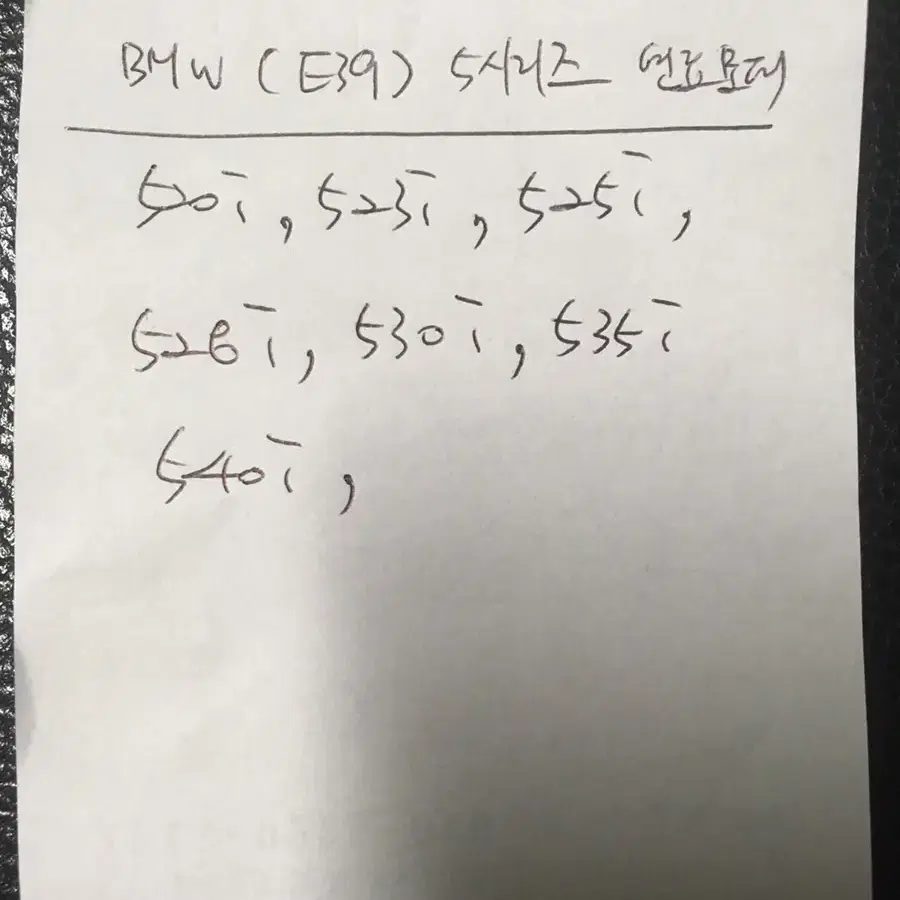 BMW (E39) 5시리즈 연료모터
520i, 523i, 525i,
528i, 530i, 535i
540i,